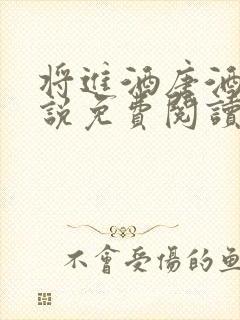 將進酒唐酒
說免費閱讀
不會受傷的魚